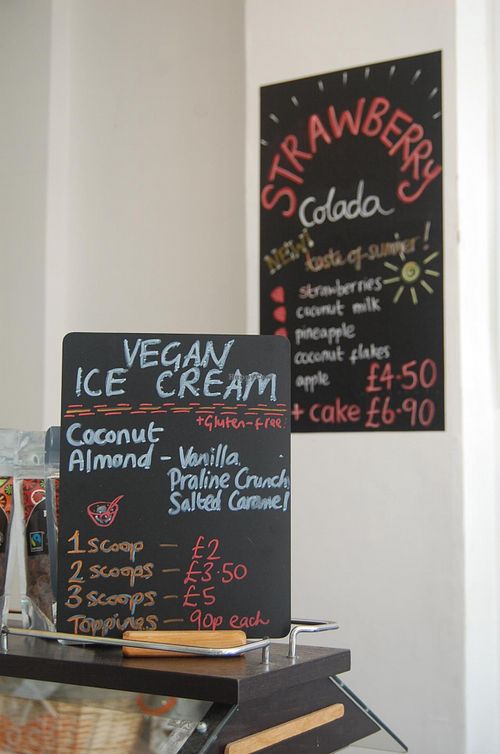 STRAWBERRY
Colada
NEW!
taste of summer!
strawberries
coconut milk
pineapple
coconut flakes
apple
£4.50
+ cake £6.90
VEGAN
ICE CREAM
+Gluten-free
Coconut
Almond - Vanilla
Praline Crunch
Salted Caramel
1 scoop - £2
2 scoops - £3.50
3 scoops - £5
Toppings - 90p each